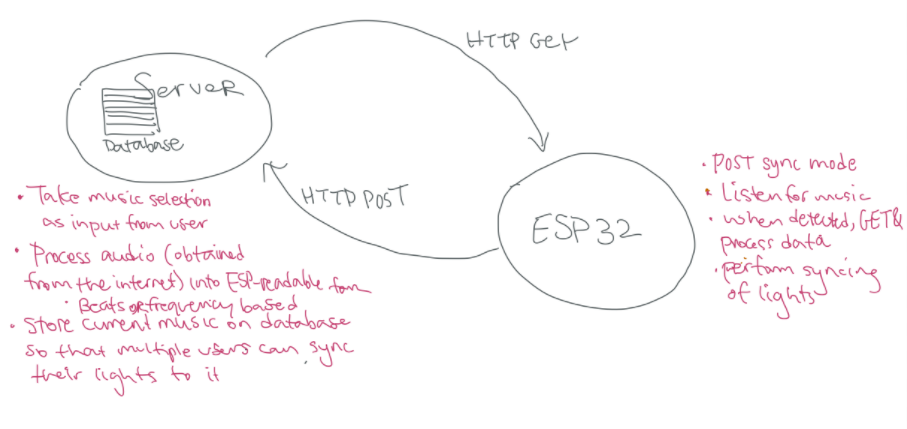 HTTP GET
SERVER
Database
HTTP POST
ESP32
• Take music selection
as input from user
• Process audio (obtained
from the internet) into ESP-readable form
• Beats or frequency based
• Store current music on database
so that multiple users can sync
their lights to it
• POST sync mode
• Listen for music
• when detected, GET &
process data
• perform syncing
of lights